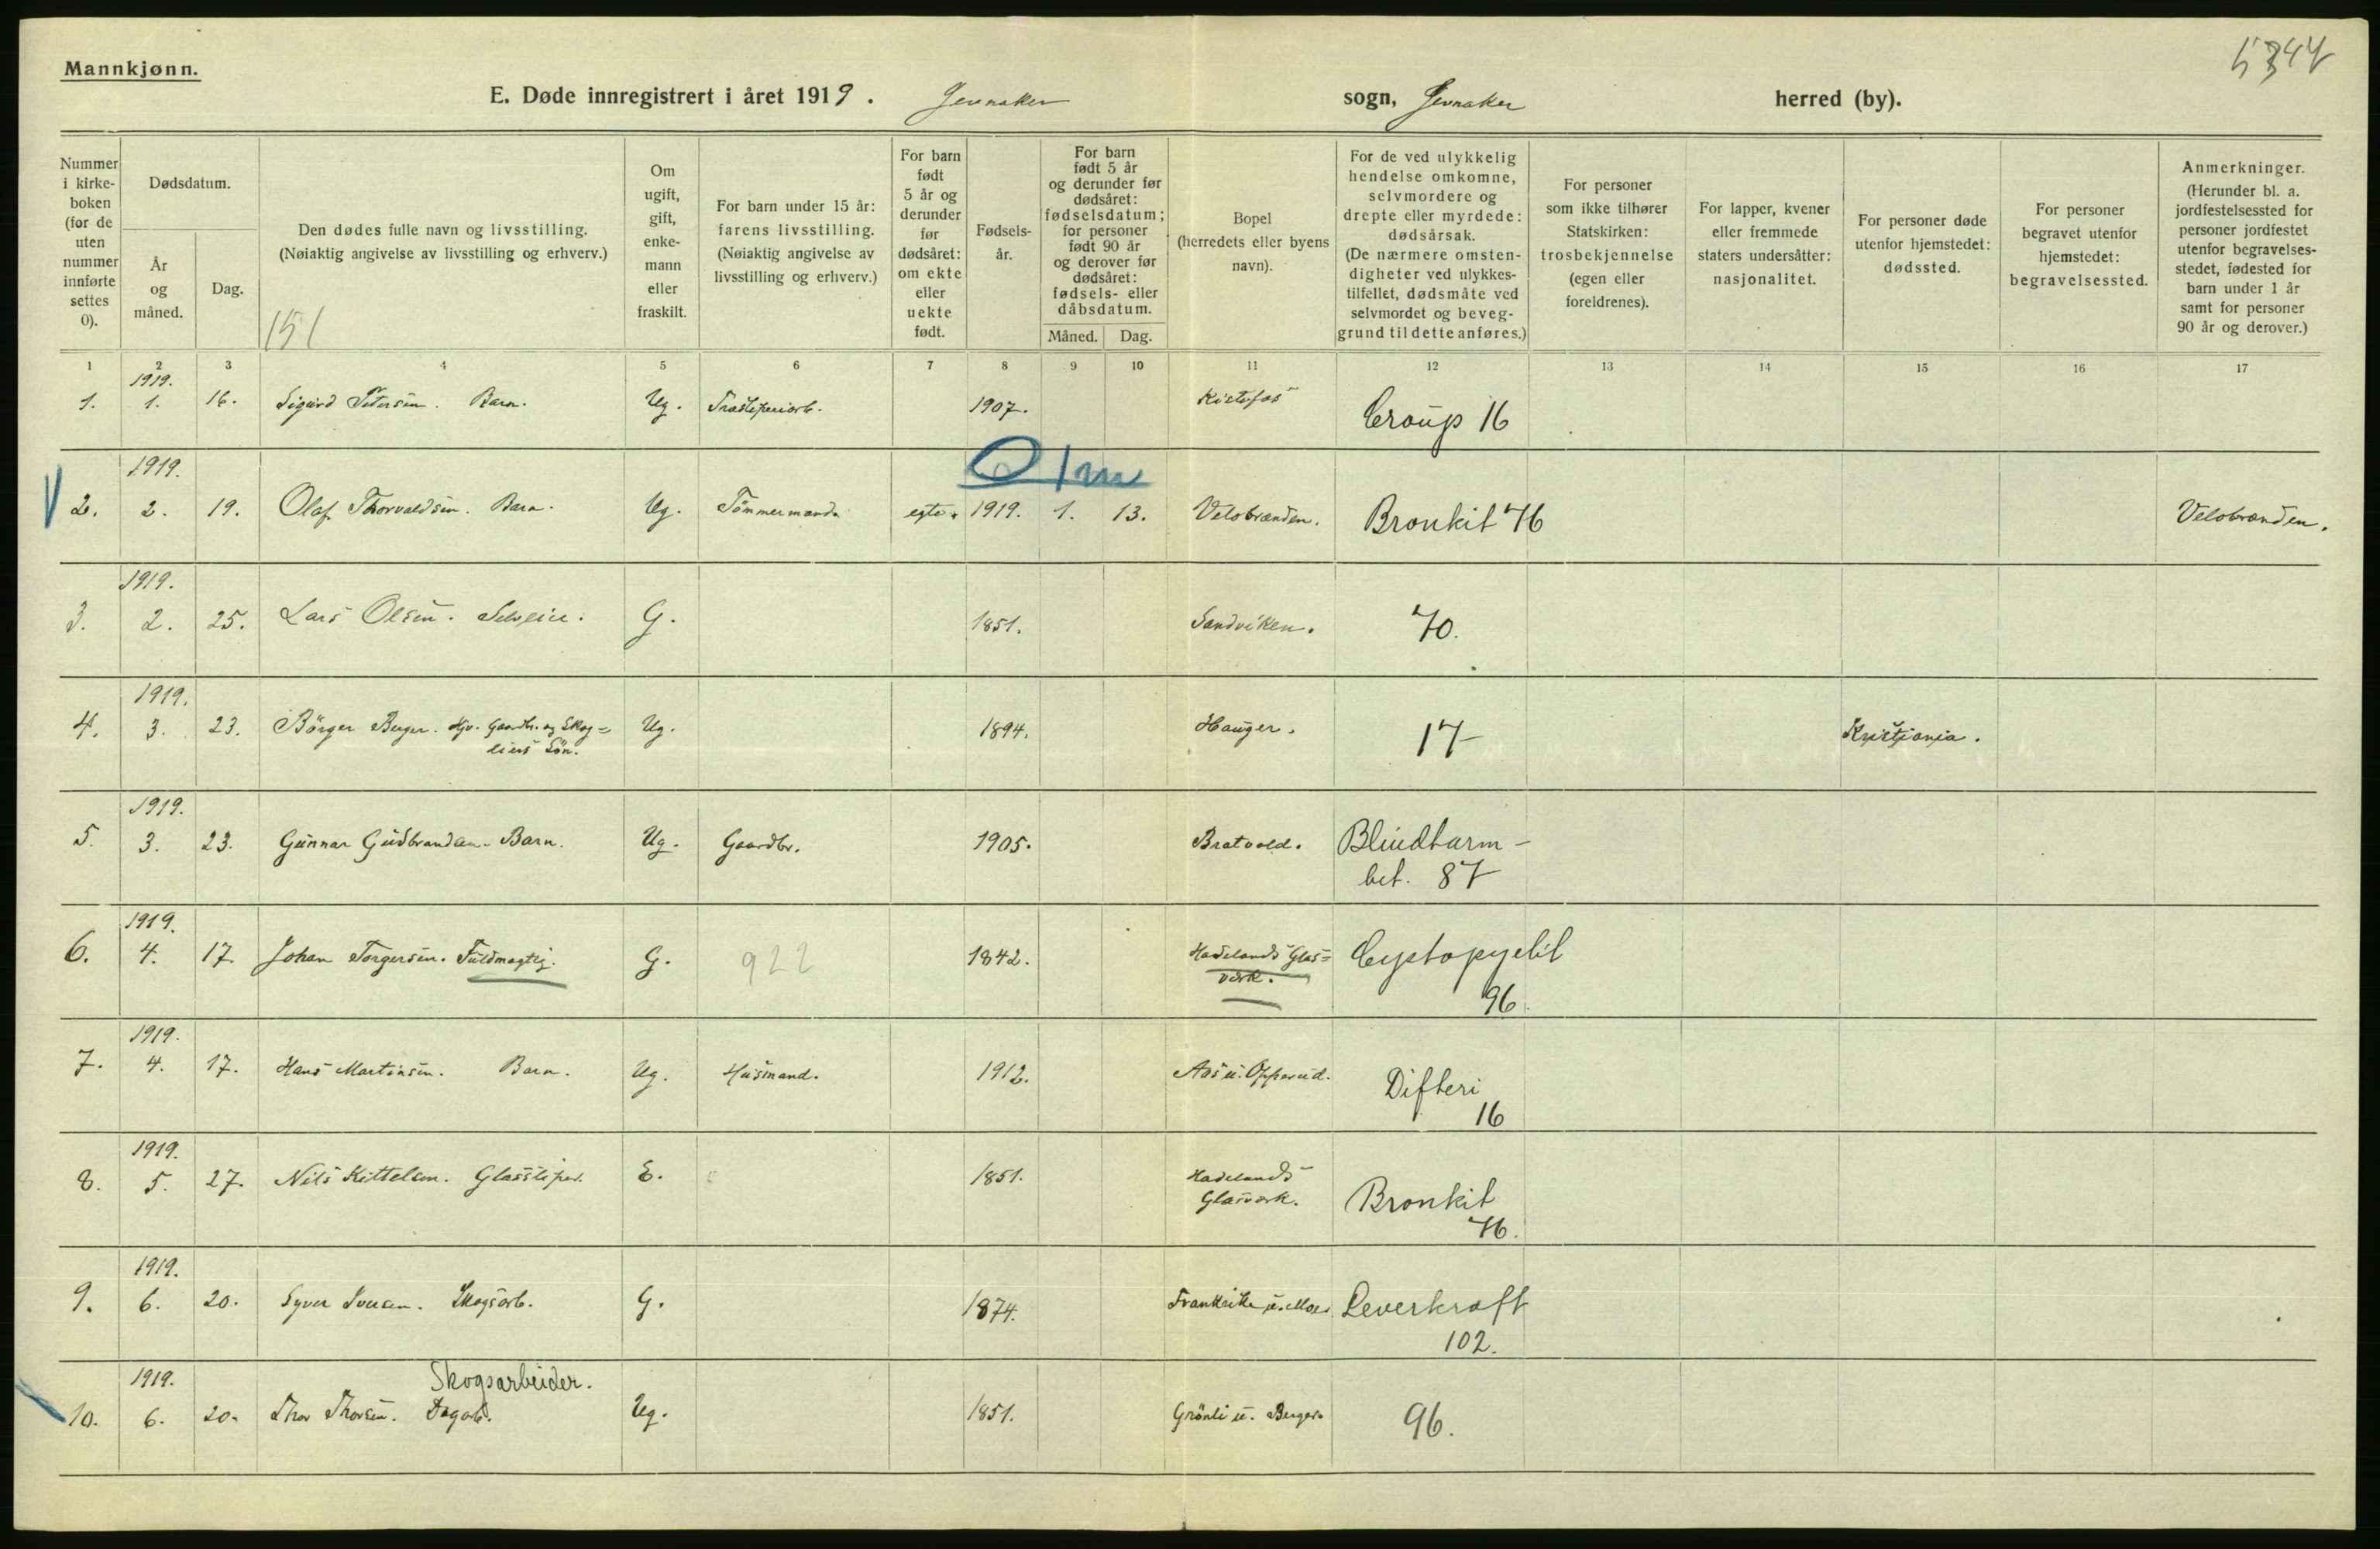 Mannkjønn.
5347
E. Døde innregistrert i året 1919. Jevnaker sogn, Jevnaker herred (by).
Nummer i kirke-boken (for de uten nummer innførte settes 0).
Dødsdatum.
År og måned.
Dag.
Den dødes fulle navn og livsstilling.
(Nøiaktig angivelse av livsstilling og erhverv.)
151
Om ugift, gift, enke-mann eller fraskilt.
For barn under 15 år: farens livsstilling. (Nøiaktig angivelse av livsstilling og erhverv.)
For barn født 5 år og derunder før dødsåret: om ekte eller uekte født.
Fødsels-år.
For barn født 5 år og derunder før dødsåret: fødselsdatum; for personer født 90 år og derover før dødsåret: fødsels- eller dåbsdatum.
Måned. Dag.
Bopel (herredets eller byens navn).
For de ved ulykkelig hendelse omkomne, selvmordere og drepte eller myrdede: dødsårsak. (De nærmere omsten-digheter ved ulykkes-tilfellet, dødsmåte ved selvmordet og beveg-grund til dette anføres.)
For personer som ikke tilhører Statskirken: trosbekjennelse (egen eller foreldrenes).
For lapper, kvener eller fremmede staters undersåtter: nasjonalitet.
For personer døde utenfor hjemstedet: dødssted.
For personer begravet utenfor hjemstedet: begravelsessted.
Anmerkninger. (Herunder bl. a. jordfestelsessted for personer jordfestet utenfor begravelses-stedet, fødested for barn under 1 år samt for personer 90 år og derover.)
1 2 3 4 5 6 7 8 9 10 11 12 13 14 15 16 17
1919.
1. 1. 16. Sigurd Petersen. Barn. Ug. Træsliperiarb. 1907. Kistefos Croup 16
0 1 m
1919.
2. 2. 19. Olaf Thorvaldsen. Barn. Ug. Tømmermand egte. 1919. 1. 13. Velobranden. Bronkit 76 Velobranden.
1919.
3. 2. 25. Lars Olsen. Selveier. G. 1851. Sandviken. 70.
1919.
4. 3. 23. Börger Berger. Hjv. Gaardbr. og Skog=
eiers Søn. Ug. 1894. Hauger. 17 Kristiania.
1919.
5. 3. 23. Gunnar Gudbrandsen. Barn. Ug. Gaardbr. 1905. Bratvold. Blindtarm-
bet. 87
1919.
6. 4. 17. Johan Torgersen. Fuldmægtig. G. 922 1842. Hadelands Glas=
værk. Cystopyelit
96.
1919.
7. 4. 17. Hans Martinsen. Barn. Ug. Husmand. 1912. Aas u. Opperud. Difteri
16
1919.
8. 5. 27. Nils Kittelsen. Glassliper. E. 1851. Hadelands
Glasværk. Bronkit
76.
1919.
9. 6. 20. Syver Iversen. Skogsarb. G. 1874. Frankrike u. Moe. Leverkræft
102.
1919. Skogsarbeider.
10. 6. 20. Thor Thorsen. Dagarb. Ug. 1851. Grönli u. Berger. 96.